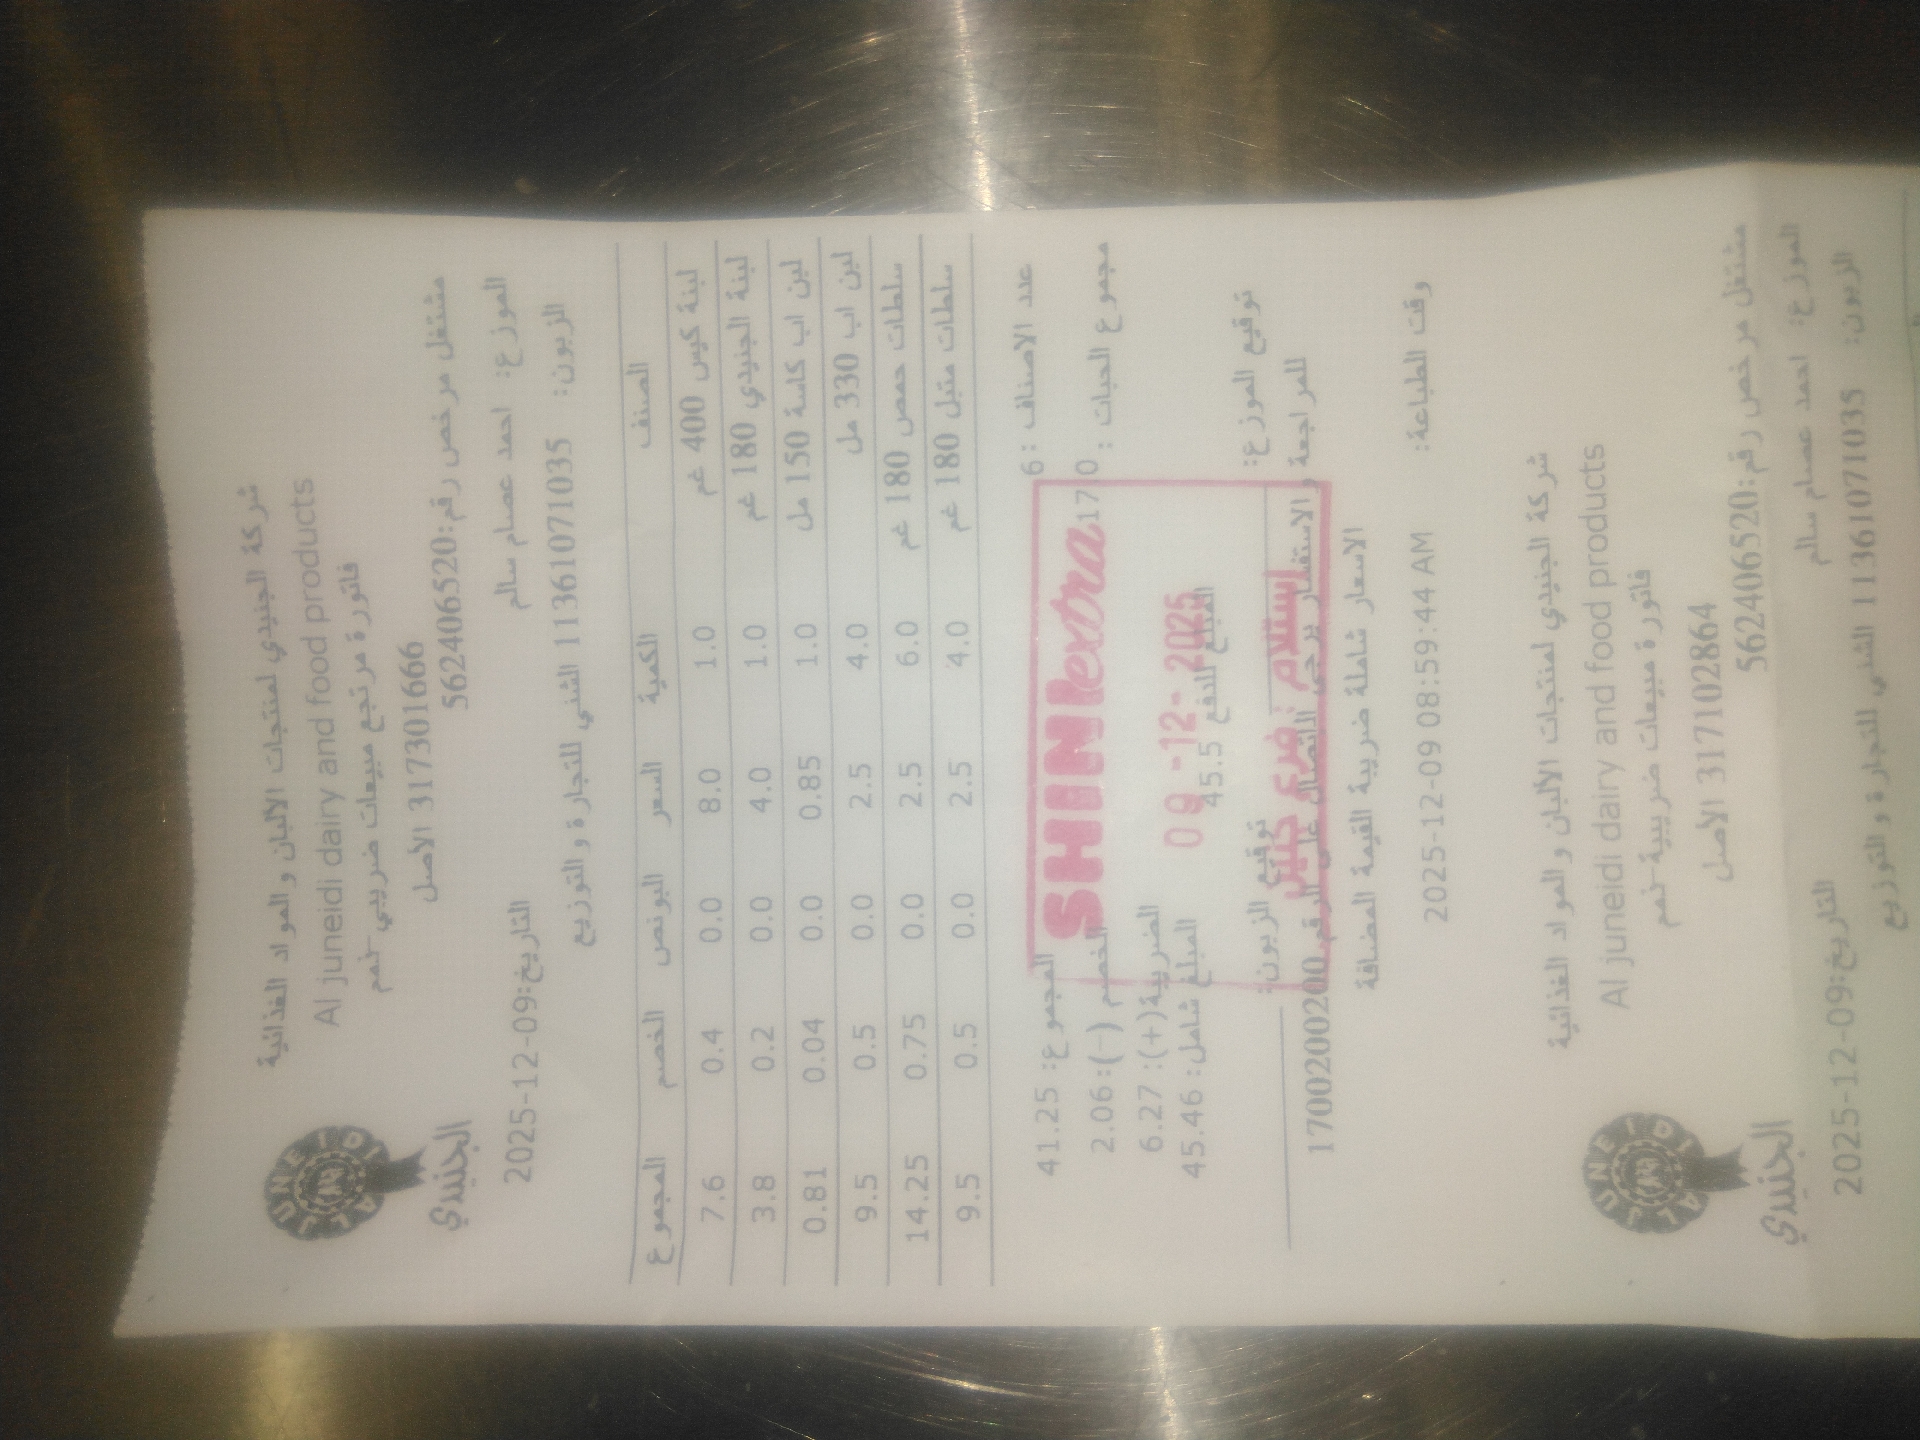 شركة الجنيدي لمنتجات الالبان و المواد الغذائية
Al juneidi dairy and food products
فاتورة مرتجع مبيعات ضريبي -ذمم
317301666 الاصل
مشتغل مرخص رقم:562406520
AL JUNEIDI
الجنيدي
الموزع: احمد عصام سالم
التاريخ:2025-12-09
الزبون: 11361071035 الشني للتجارة و التوزيع
الصنف الكمية السعر البونص الخصم المجموع
لبنة كيس 400 غم 1.0 8.0 0.0 0.4 7.6
لبنة الجنيدي 180 غم 1.0 4.0 0.0 0.2 3.8
لبن اب كاسة 150 مل 1.0 0.85 0.0 0.04 0.81
لبن اب 330 مل 4.0 2.5 0.0 0.5 9.5
سلطات حمص 180 غم 6.0 2.5 0.0 0.75 14.25
سلطات متبل 180 غم 4.0 2.5 0.0 0.5 9.5
عدد الاصناف : 6 المجموع: 41.25
مجموع الحبات : 17.0 الخصم (-): 2.06
الضريبة(+): 6.27
المبلغ شامل: 45.46
المبلغ للدفع 45.5
SHINI extra
09-12-2025
استلام : فرع
توقيع الموزع: توقيع الزبون:
للمراجعة و الاستفسار يرجى الاتصال على الرقم 1700200200
الاسعار شاملة ضريبة القيمة المضافة
وقت الطباعة: 2025-12-09 08:59:44 AM
شركة الجنيدي لمنتجات الالبان و المواد الغذائية
Al juneidi dairy and food products
فاتورة مبيعات ضريبية -ذمم
317102864 الاصل
مشتغل مرخص رقم:562406520
AL JUNEIDI
الجنيدي
الموزع: احمد عصام سالم
التاريخ:2025-12-09
الزبون: 11361071035 الشني للتجارة و التوزيع